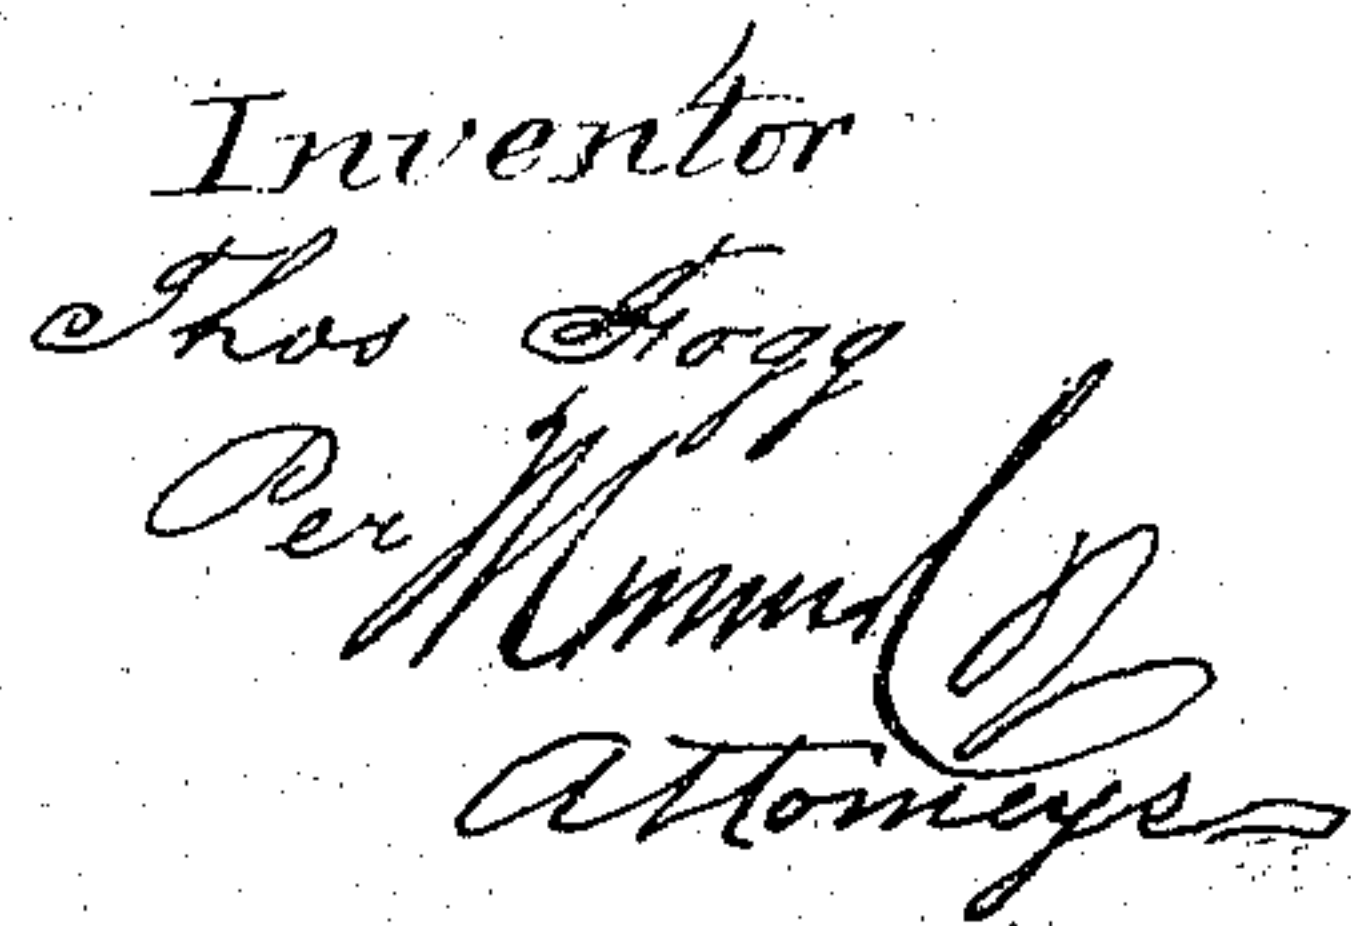 Inventor
Thos Fogg
Per Munn
Attorneys